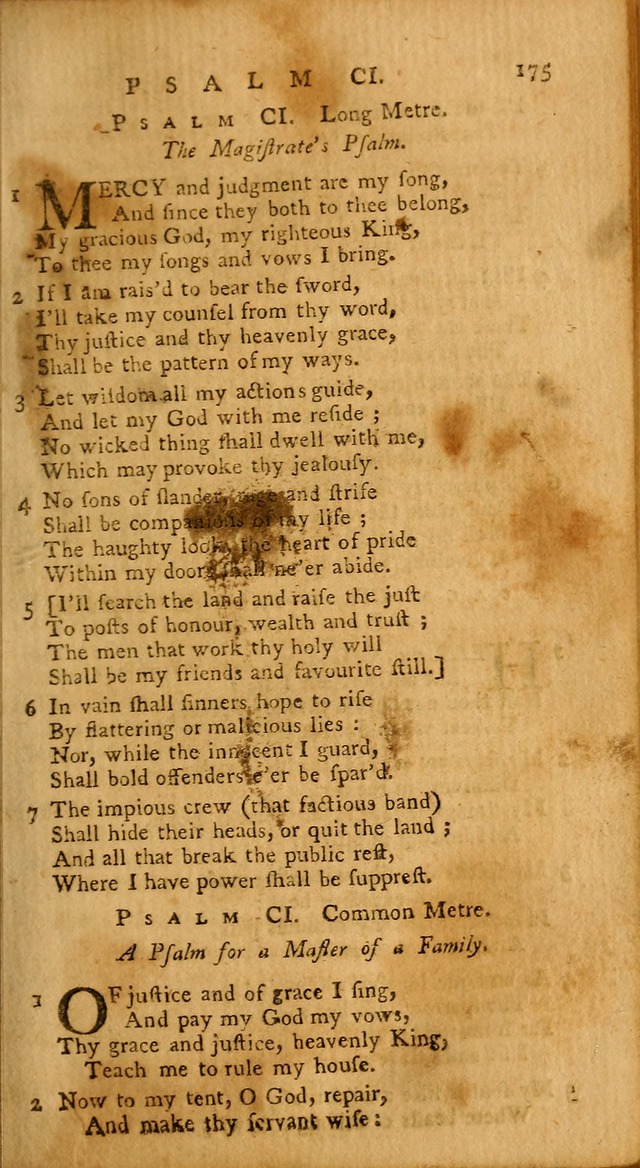 PSALM CI. 175
PSALM CI. Long Metre.
The Magiſtrate's Pſalm.
1 MERCY and judgment are my ſong,
And ſince they both to thee belong,
My gracious God, my righteous King,
To thee my ſongs and vows I bring.
2 If I am rais'd to bear the ſword,
I'll take my counſel from thy word,
Thy juſtice and thy heavenly grace,
Shall be the pattern of my ways.
3 Let wiſdom all my actions guide,
And let my God with me reſide ;
No wicked thing ſhall dwell with me,
Which may provoke thy jealouſy.
4 No ſons of ſlander, rage and ſtrife
Shall be companions of my life ;
The haughty look, the heart of pride
Within my doors ſhall ne'er abide.
5 [I'll ſearch the land and raiſe the juſt
To poſts of honour, wealth and truſt ;
The men that work thy holy will
Shall be my friends and favourite ſtill.]
6 In vain ſhall ſinners hope to riſe
By flattering or malicious lies :
Nor, while the innocent I guard,
Shall bold offenders e'er be ſpar'd.
7 The impious crew (that factious band)
Shall hide their heads, or quit the land ;
And all that break the public reſt,
Where I have power ſhall be ſuppreſt.
PSALM CI. Common Metre.
A Pſalm for a Maſter of a Family.
1 OF juſtice and of grace I ſing,
And pay my God my vows,
Thy grace and juſtice, heavenly King,
Teach me to rule my houſe.
2 Now to my tent, O God, repair,
And make thy ſervant wiſe :